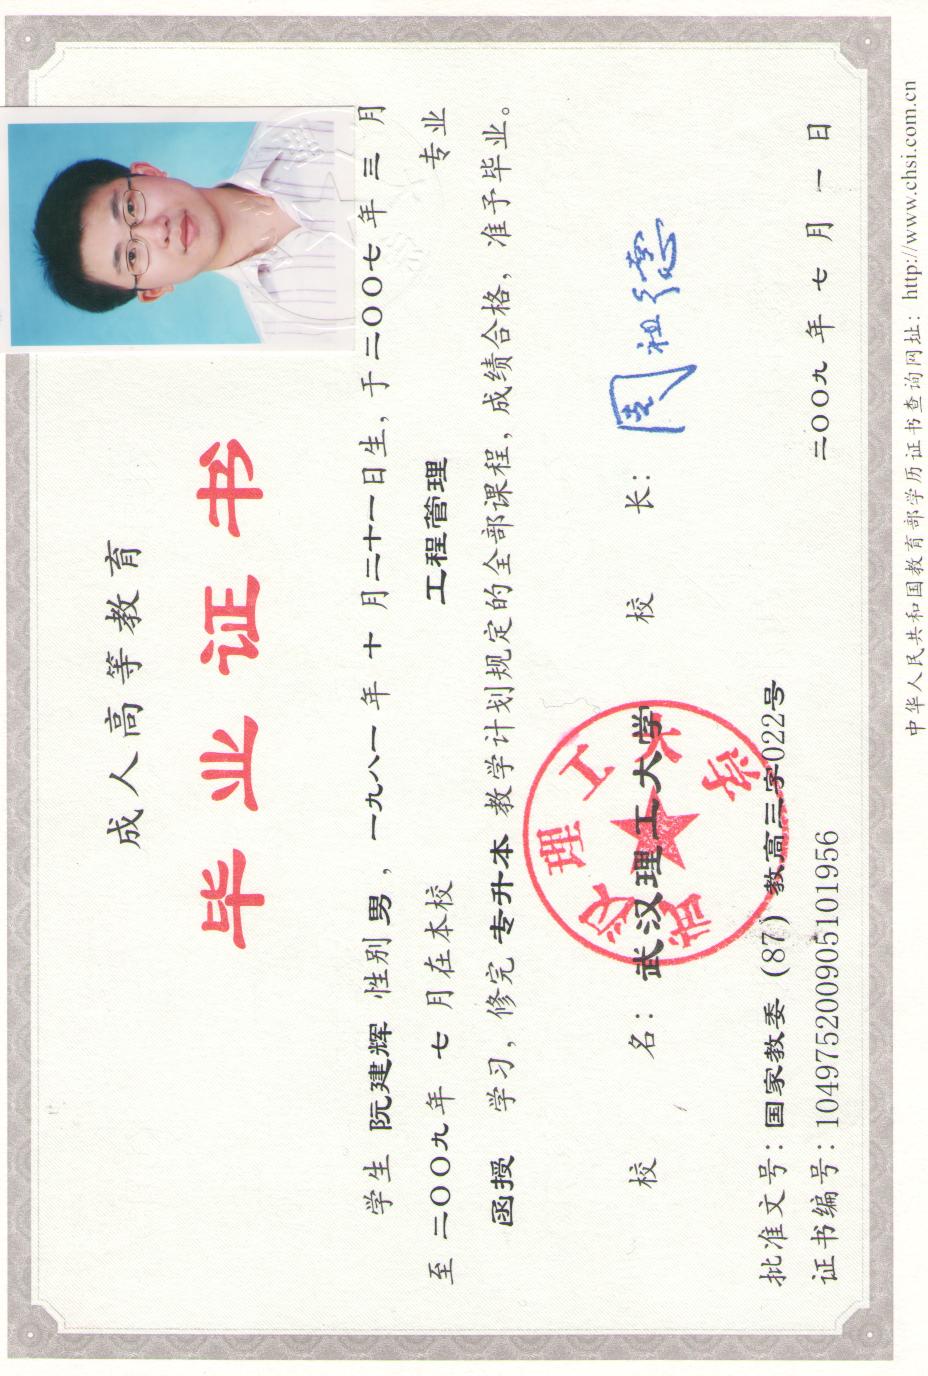 成人高等教育
毕业证书
学生 阮建辉 性别 男，一九八一年 十 月二十一日生，于二〇〇七年 三 月
至二〇〇九年 七 月在本校 工程管理 专业
函授 学习，修完 专升本 教学计划规定的全部课程，成绩合格，准予毕业。
校 名：武汉理工大学 校 长：周祖德
武汉理工大学
批准文号：国家教委（87）教高三字022号
证书编号：104975200905101956 二〇〇九年 七 月 一 日
中华人民共和国教育部学历证书查询网址：http://www.chsi.com.cn